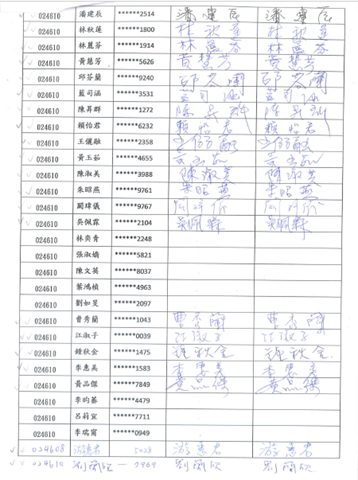 ✓ 024610 潘建辰 ******2514 潘建辰 潘建辰
024610 林秋蓮 ******1800 林秋蓮 林秋蓮
024610 林麗芬 ******1914 林麗芬 林麗芬
024610 黃慧芳 ******5626 黃慧芳 黃慧芳
024610 邱芬蘭 ******9240 邱芬蘭 邱芬蘭
024610 藍司涵 ******3531
024610 陳昇群 ******1272 陳昇群 陳昇群
024610 賴怡君 ******6232 賴怡君 賴怡君
024610 王儷融 ******2358
024610 黃玉茹 ******4655 黃玉茹 黃玉茹
024610 陳淑美 ******3988 陳淑美 陳淑美
024610 朱昭燕 ******9761 朱昭燕 朱昭燕
024610 ******9767
024610 吳佩霖 ******2104 吳佩霖 吳佩霖
024610 林奕青 ******2248
024610 張淑嬌 ******5821
024610 陳文英 ******8037
024610 葉鴻楨 ******4963
024610 劉如旻 ******2097
024610 曹秀蘭 ******1043 曹秀蘭 曹秀蘭
024610 江淑子 ******0039 江淑子 江淑子
024610 鍾秋金 ******1475 鍾秋金 鍾秋金
024610 李惠美 ******1583 李惠美 李惠美
024610 黃品傑 ******7849 黃品傑 黃品傑
024610 李昀蓁 ******4479
024610 呂莉宜 ******7711
024610 李瑞甯 ******0949
024608 5028
024610 劉蘭欣 — 0969 劉蘭欣 劉蘭欣